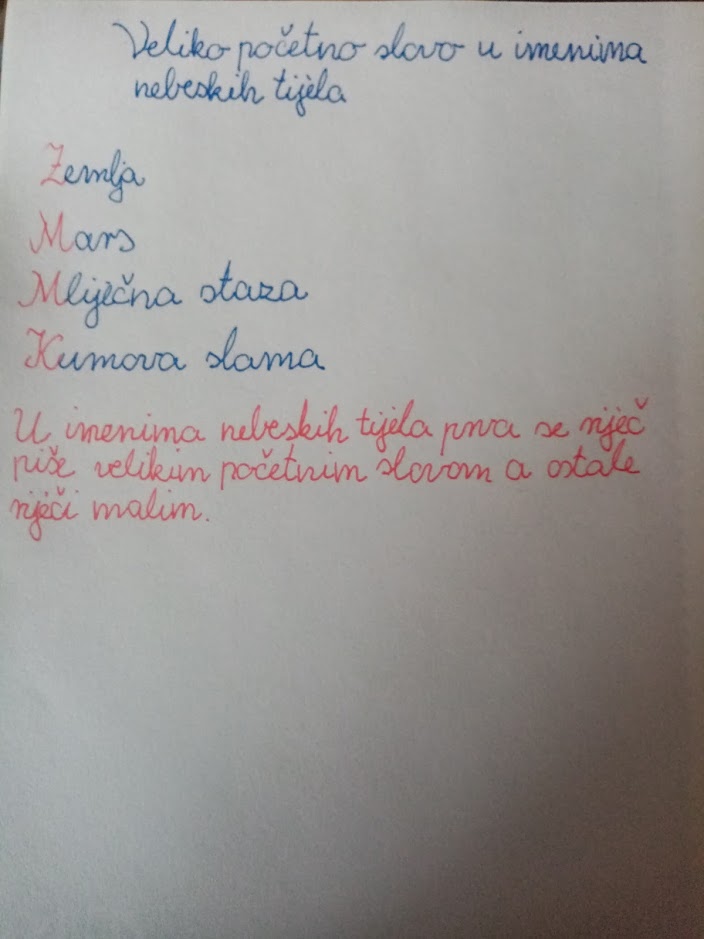 Veliko početno slovo u imenima
nebeskih tijela
Zemlja
Mars
Mliječna staza
Kumova slama
U imenima nebeskih tijela prva se riječ
piše velikim početnim slovom a ostale
riječi malim.